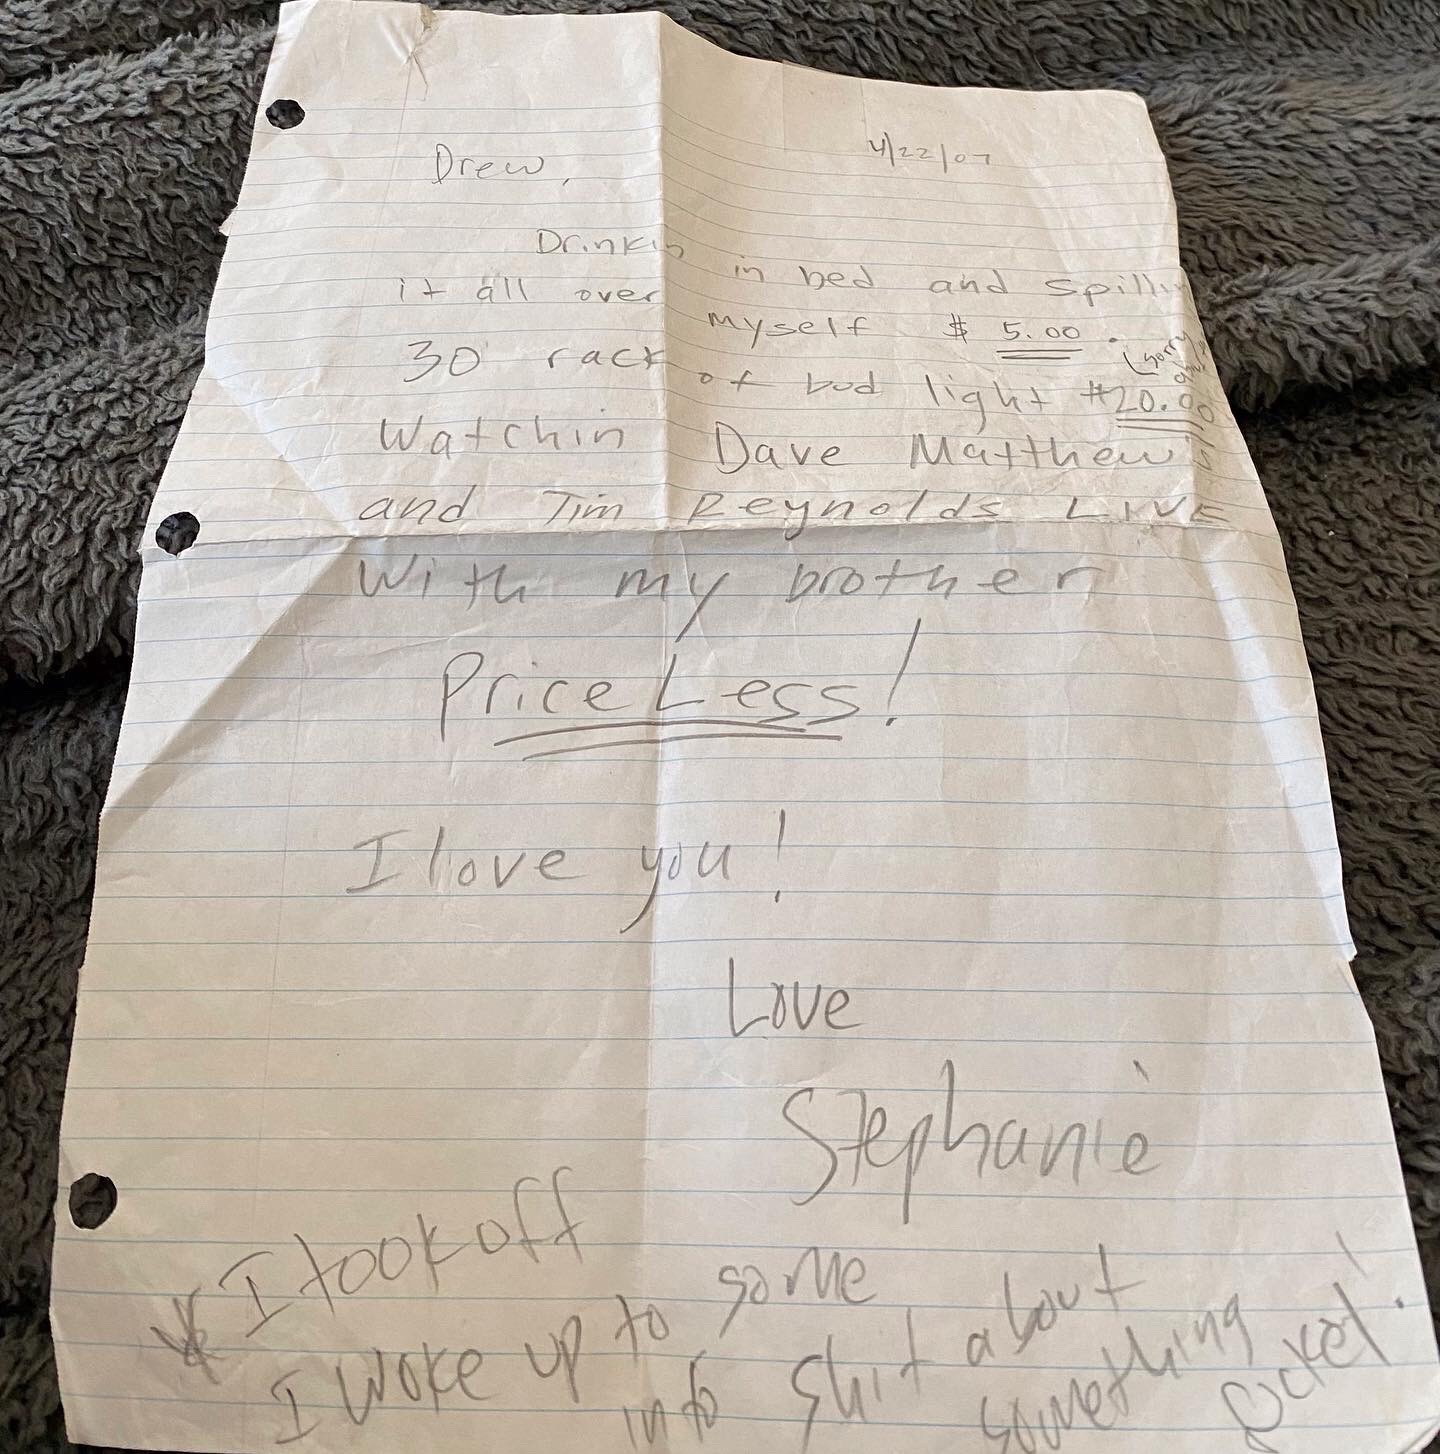 4/22/07
Drew,
Drinkin in bed and spillin
it all over myself $ 5.00.
(sorry
30 rack of bud light $20.00
Watchin Dave Matthews
and Tim Reynolds LIVE
With my brother
PriceLess!
I love you!
Love
Stephanie
I took off
I woke up to some
info shit about
something
Rocket!